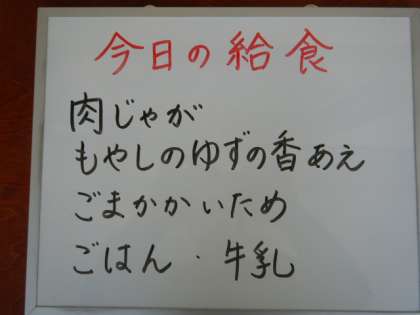 今日の給食
肉じゃが
もやしのゆずの香あえ
ごまかかいため
ごはん・牛乳